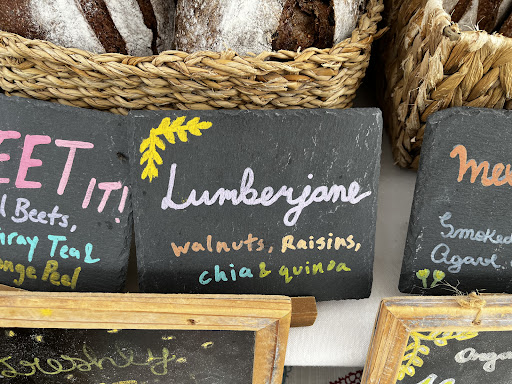 EET IT!
Beets,
Tea &
Peel
Lumberjane
walnuts, Raisins,
chia & quinoa
Smoked
Agave
freshly